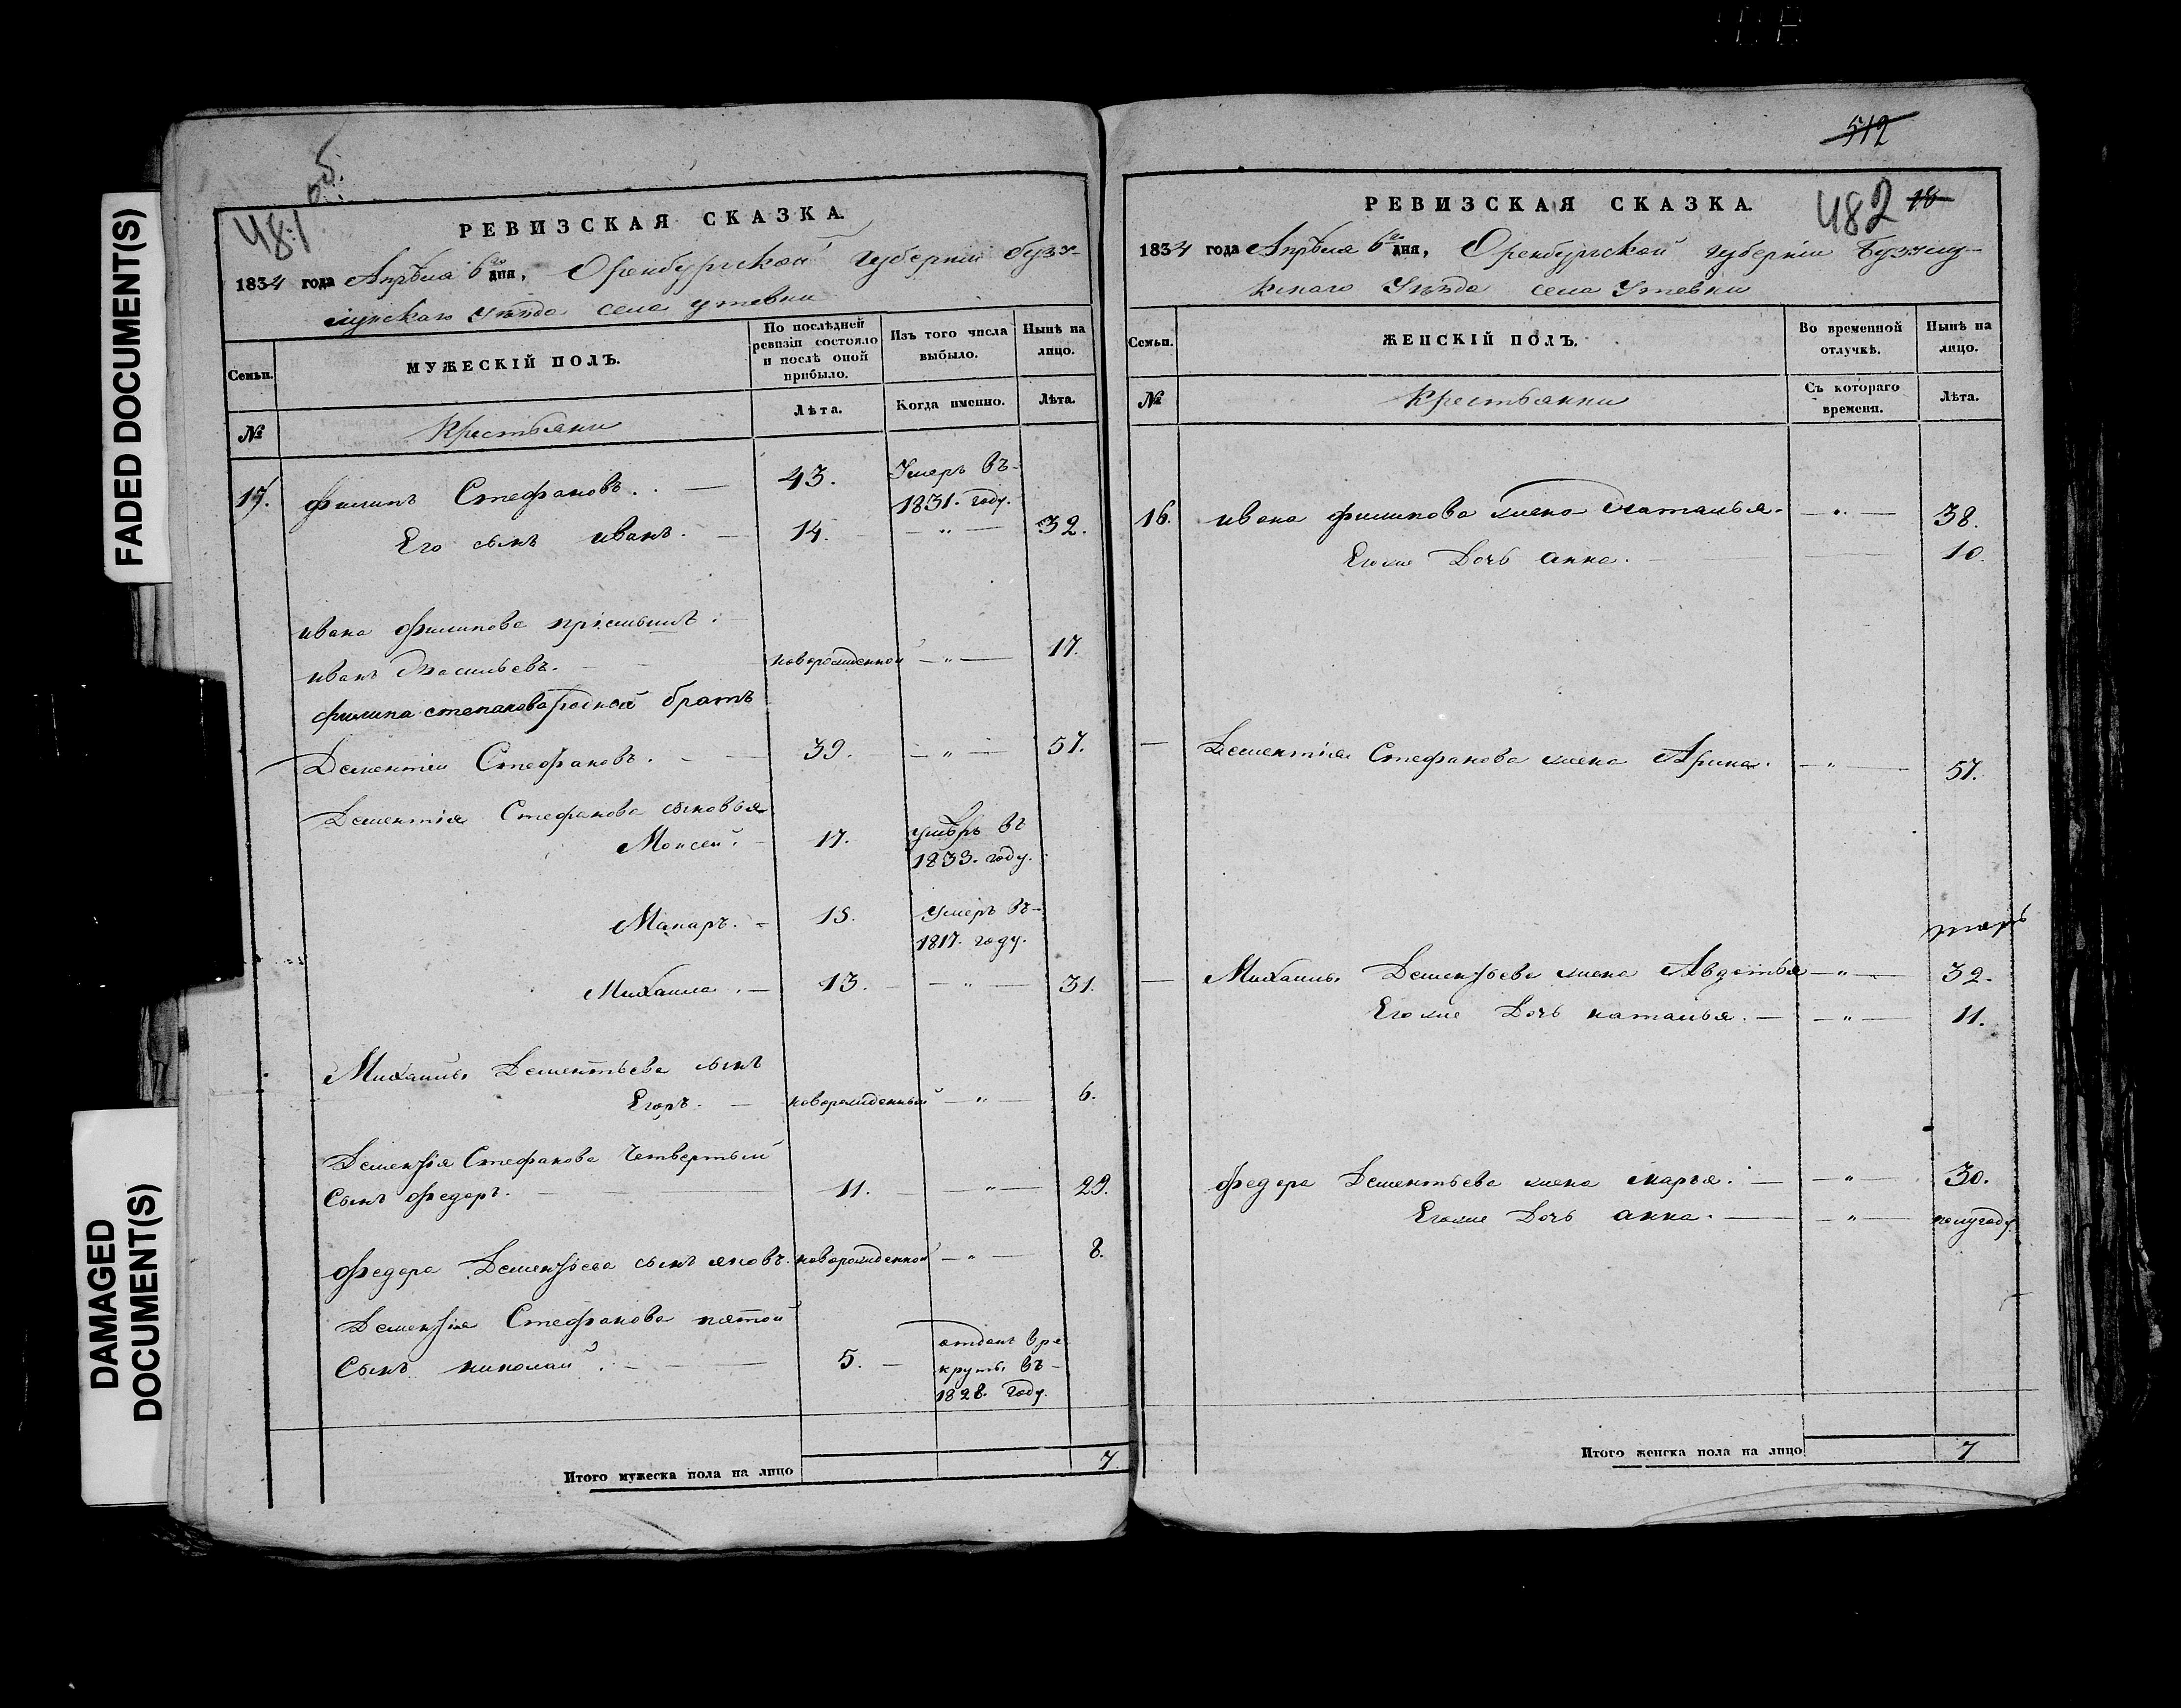 FADED DOCUMENT(S)
DAMAGED
DOCUMENT(S)
481 об.
РЕВИЗСКАЯ СКАЗКА.
1834 года Апрѣля 6го дня, Оренбургской губерніи Бузу-
лукскаго уѣзда села утевки
Семьи.
МУЖЕСКІЙ ПОЛЪ.
По послѣдней
ревизіи состояло
и послѣ оной
прибыло.
Изъ того числа
выбыло.
Нынѣ на
лицо.
№
Крестьяни
Лѣта.
Когда именно.
Лѣта.
17. филипъ Стефановъ. 43. Умеръ въ
1831. году.
Его сынъ иванъ. 14. 32.
ивана филипова пріемышъ.
иванъ Васильевъ. новорожденной 17.
филипа степанова родной братъ
Дементіи Стефановъ. 39. 57.
Дементія Стефанова сыновья
Моисей. 17. умѣръ въ
1833. году.
Макаръ. 15. Умеръ въ
1817. году.
Михаила. 13. 31.
Михаилы Дементьева сынъ
Егоръ. новорожденный 6.
Дементія Стефанова четвертый
Сынъ федоръ. 11. 29.
федора Дементьева сынъ яковъ. новорожденной 8.
Дементія Стефанова пятой
Сынъ николай. 5. отданъ в ре
круты въ
1828. году.
Итого мужеска пола на лицо 7.
512
482 18
РЕВИЗСКАЯ СКАЗКА.
1834 года Апрѣля 6го дня, Оренбургской губерніи Бузулу-
кскаго Уѣзда села Утевки
Семьи.
ЖЕНСКІЙ ПОЛЪ.
Во временной
отлучкѣ.
Нынѣ на
лицо.
№
Крестьянки
Съ котораго
времени.
Лѣта.
16. ивана филипова жена Наталья. 38.
Егоже Дочь анна. 10.
Дементія Стефанова жена Арина. 57.
Михаилы Дементьева жена Авдотья 32.
Егоже Дочь наталья. 11.
федора Дементьева жена марья. 30.
Егоже Дочь анна. полугоду
Итого женска пола на лицо 7